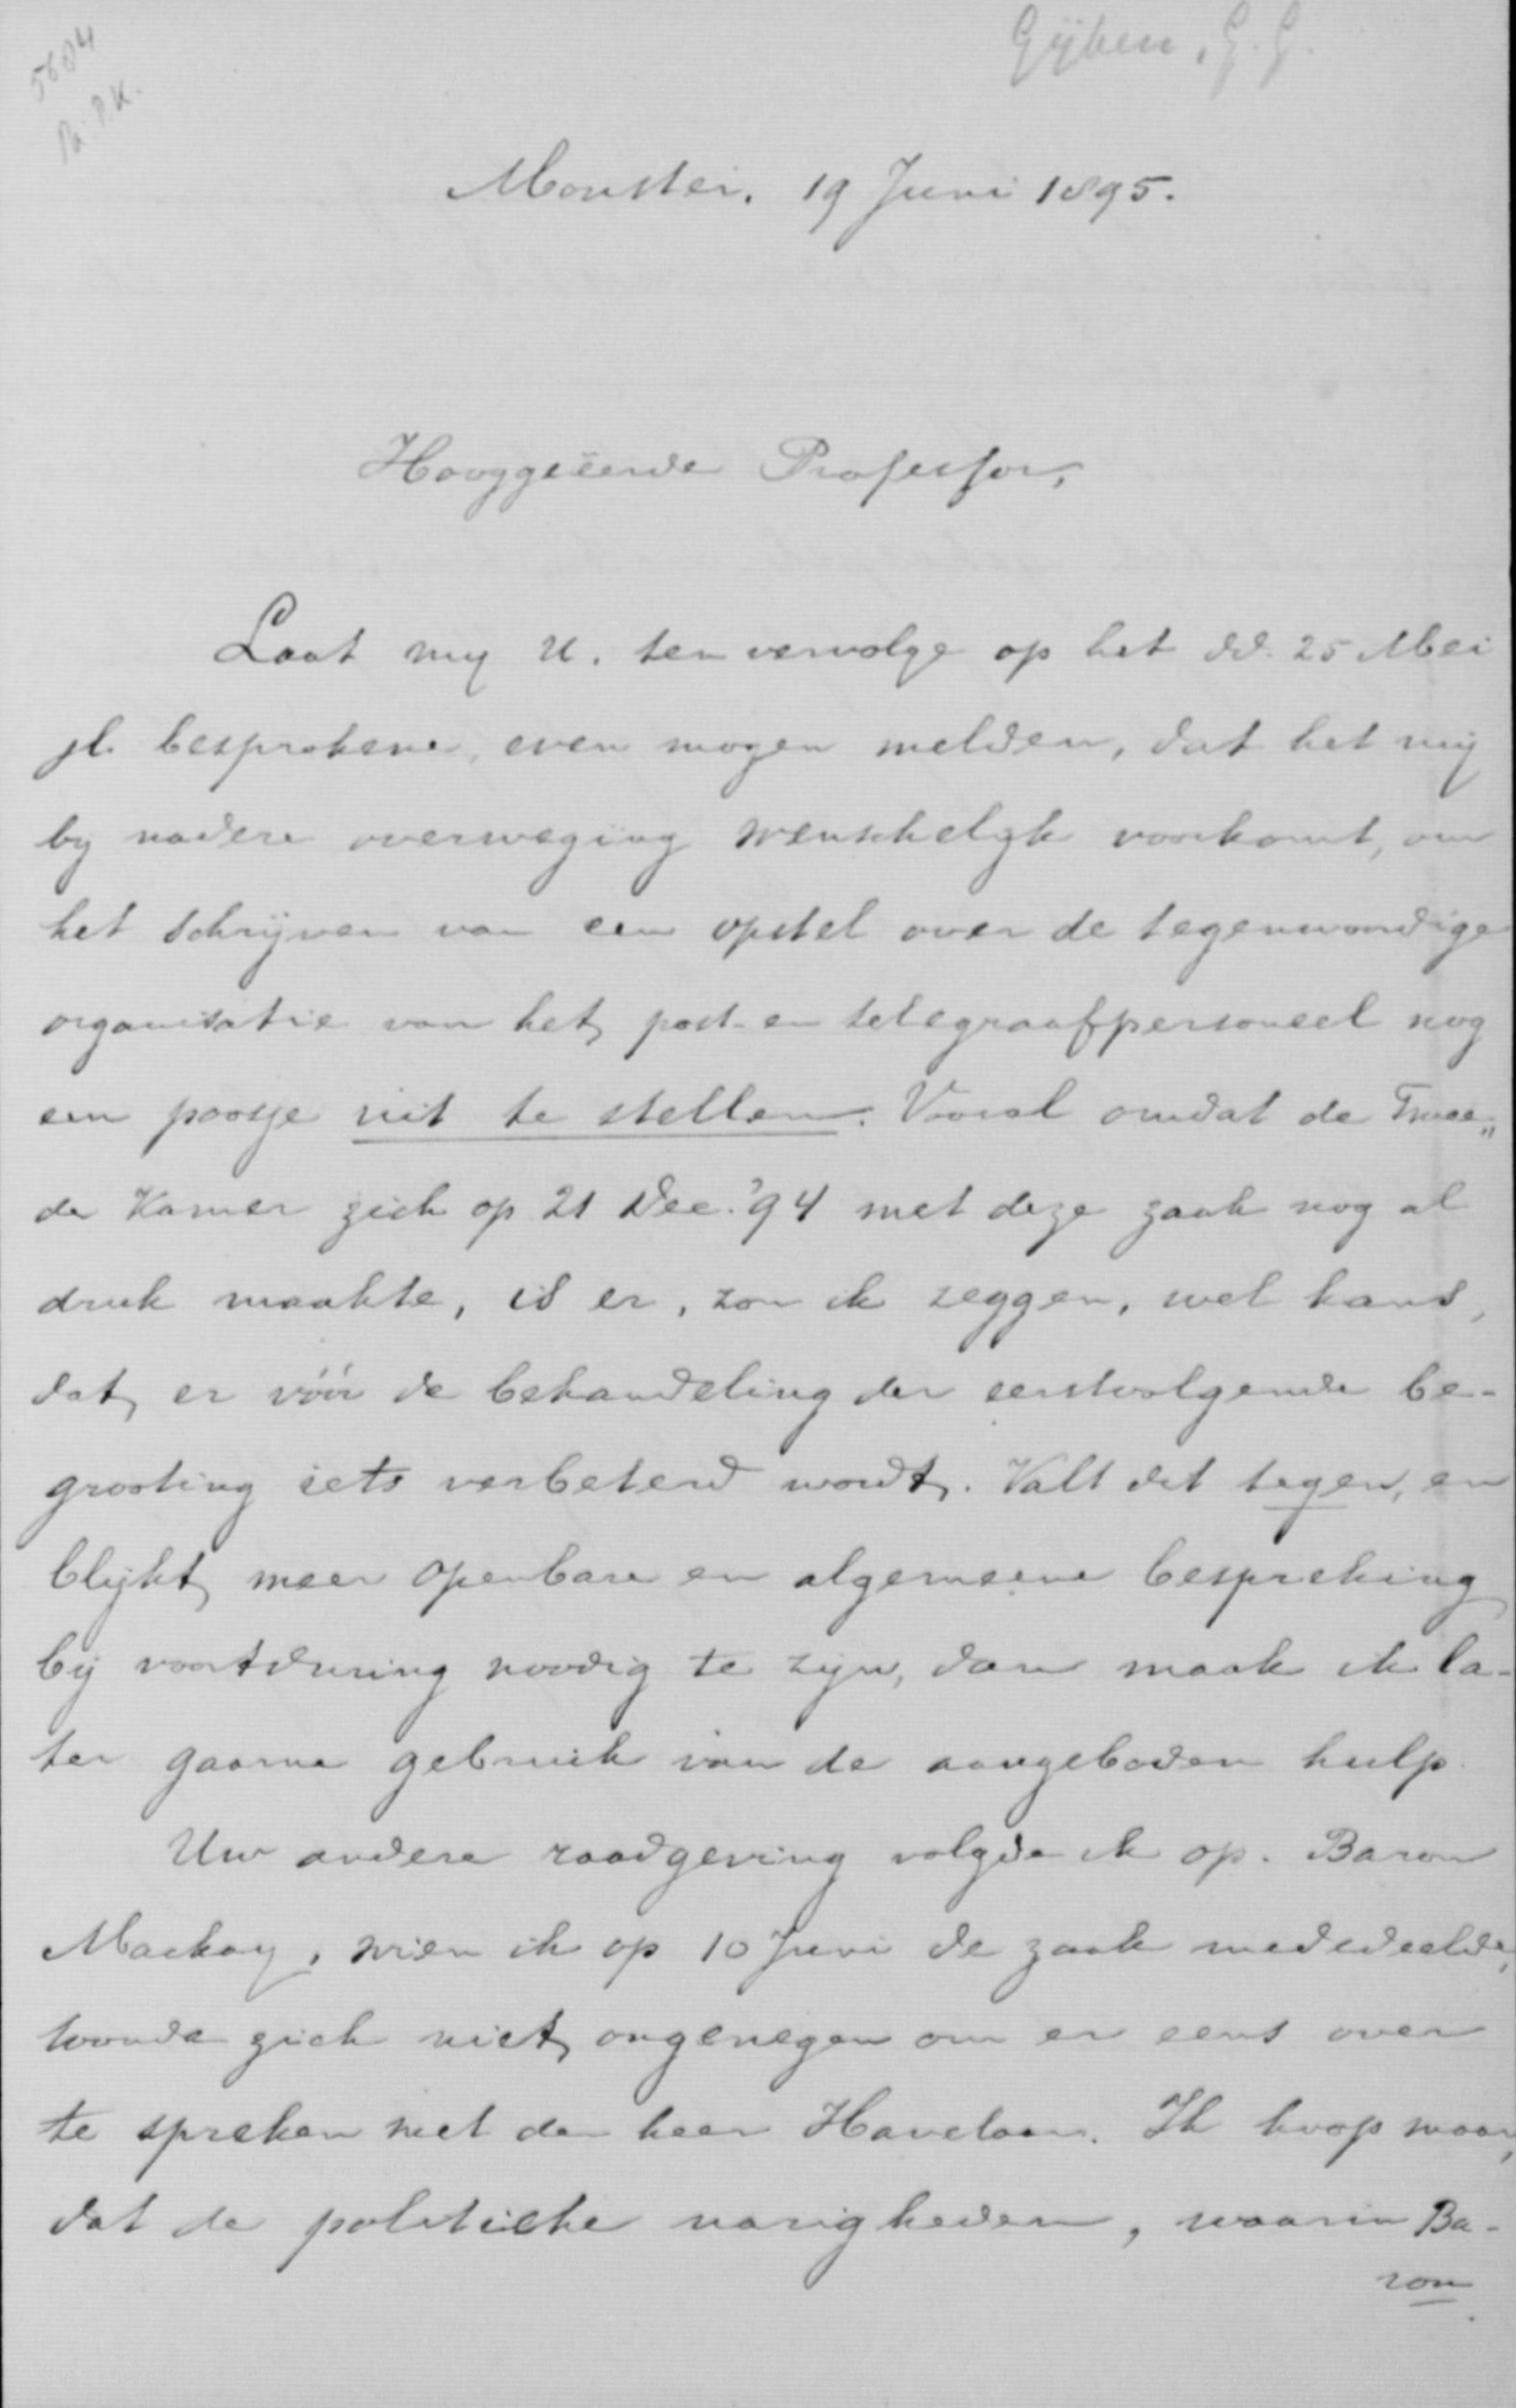 5604
Pa. P.K.
Gijben, G.G.
Monster, 19 Juni 1895.
Hooggeëerde Professor,
Laat my U. ten vervolge op het dd. 25 Mei
jl. besprokene, even mogen melden, dat het mij
bij nadere overweging wenschelijk voorkomt, om
het schrijven van een opstel over de tegenwoordige
organisatie van het post- en telegraafpersoneel nog
een poosje uit te stellen. Vooral omdat de Twee„
de Kamer zich op 21 Dec. '94 met deze zaak nog al
druk maakte, is er, zou ik zeggen, wel kans,
dat er vóór de behandeling der eerstvolgende be-
grooting iets verbeterd wordt. Valt dit tegen, en
blijkt meer openbare en algemeene bespreking
bij voortduring noodig te zijn, dan maak ik la-
ter gaarne gebruik van de aangeboden hulp.
Uw andere raadgeving volgde ik op. Baron
Mackay, wien ik op 10 Juni de zaak mededeelde,
toonde zich niet ongenegen om er eens over
te spreken met den heer Havelaar. Ik hoop maar,
dat de politieke narigheden, waarin Ba-
ron